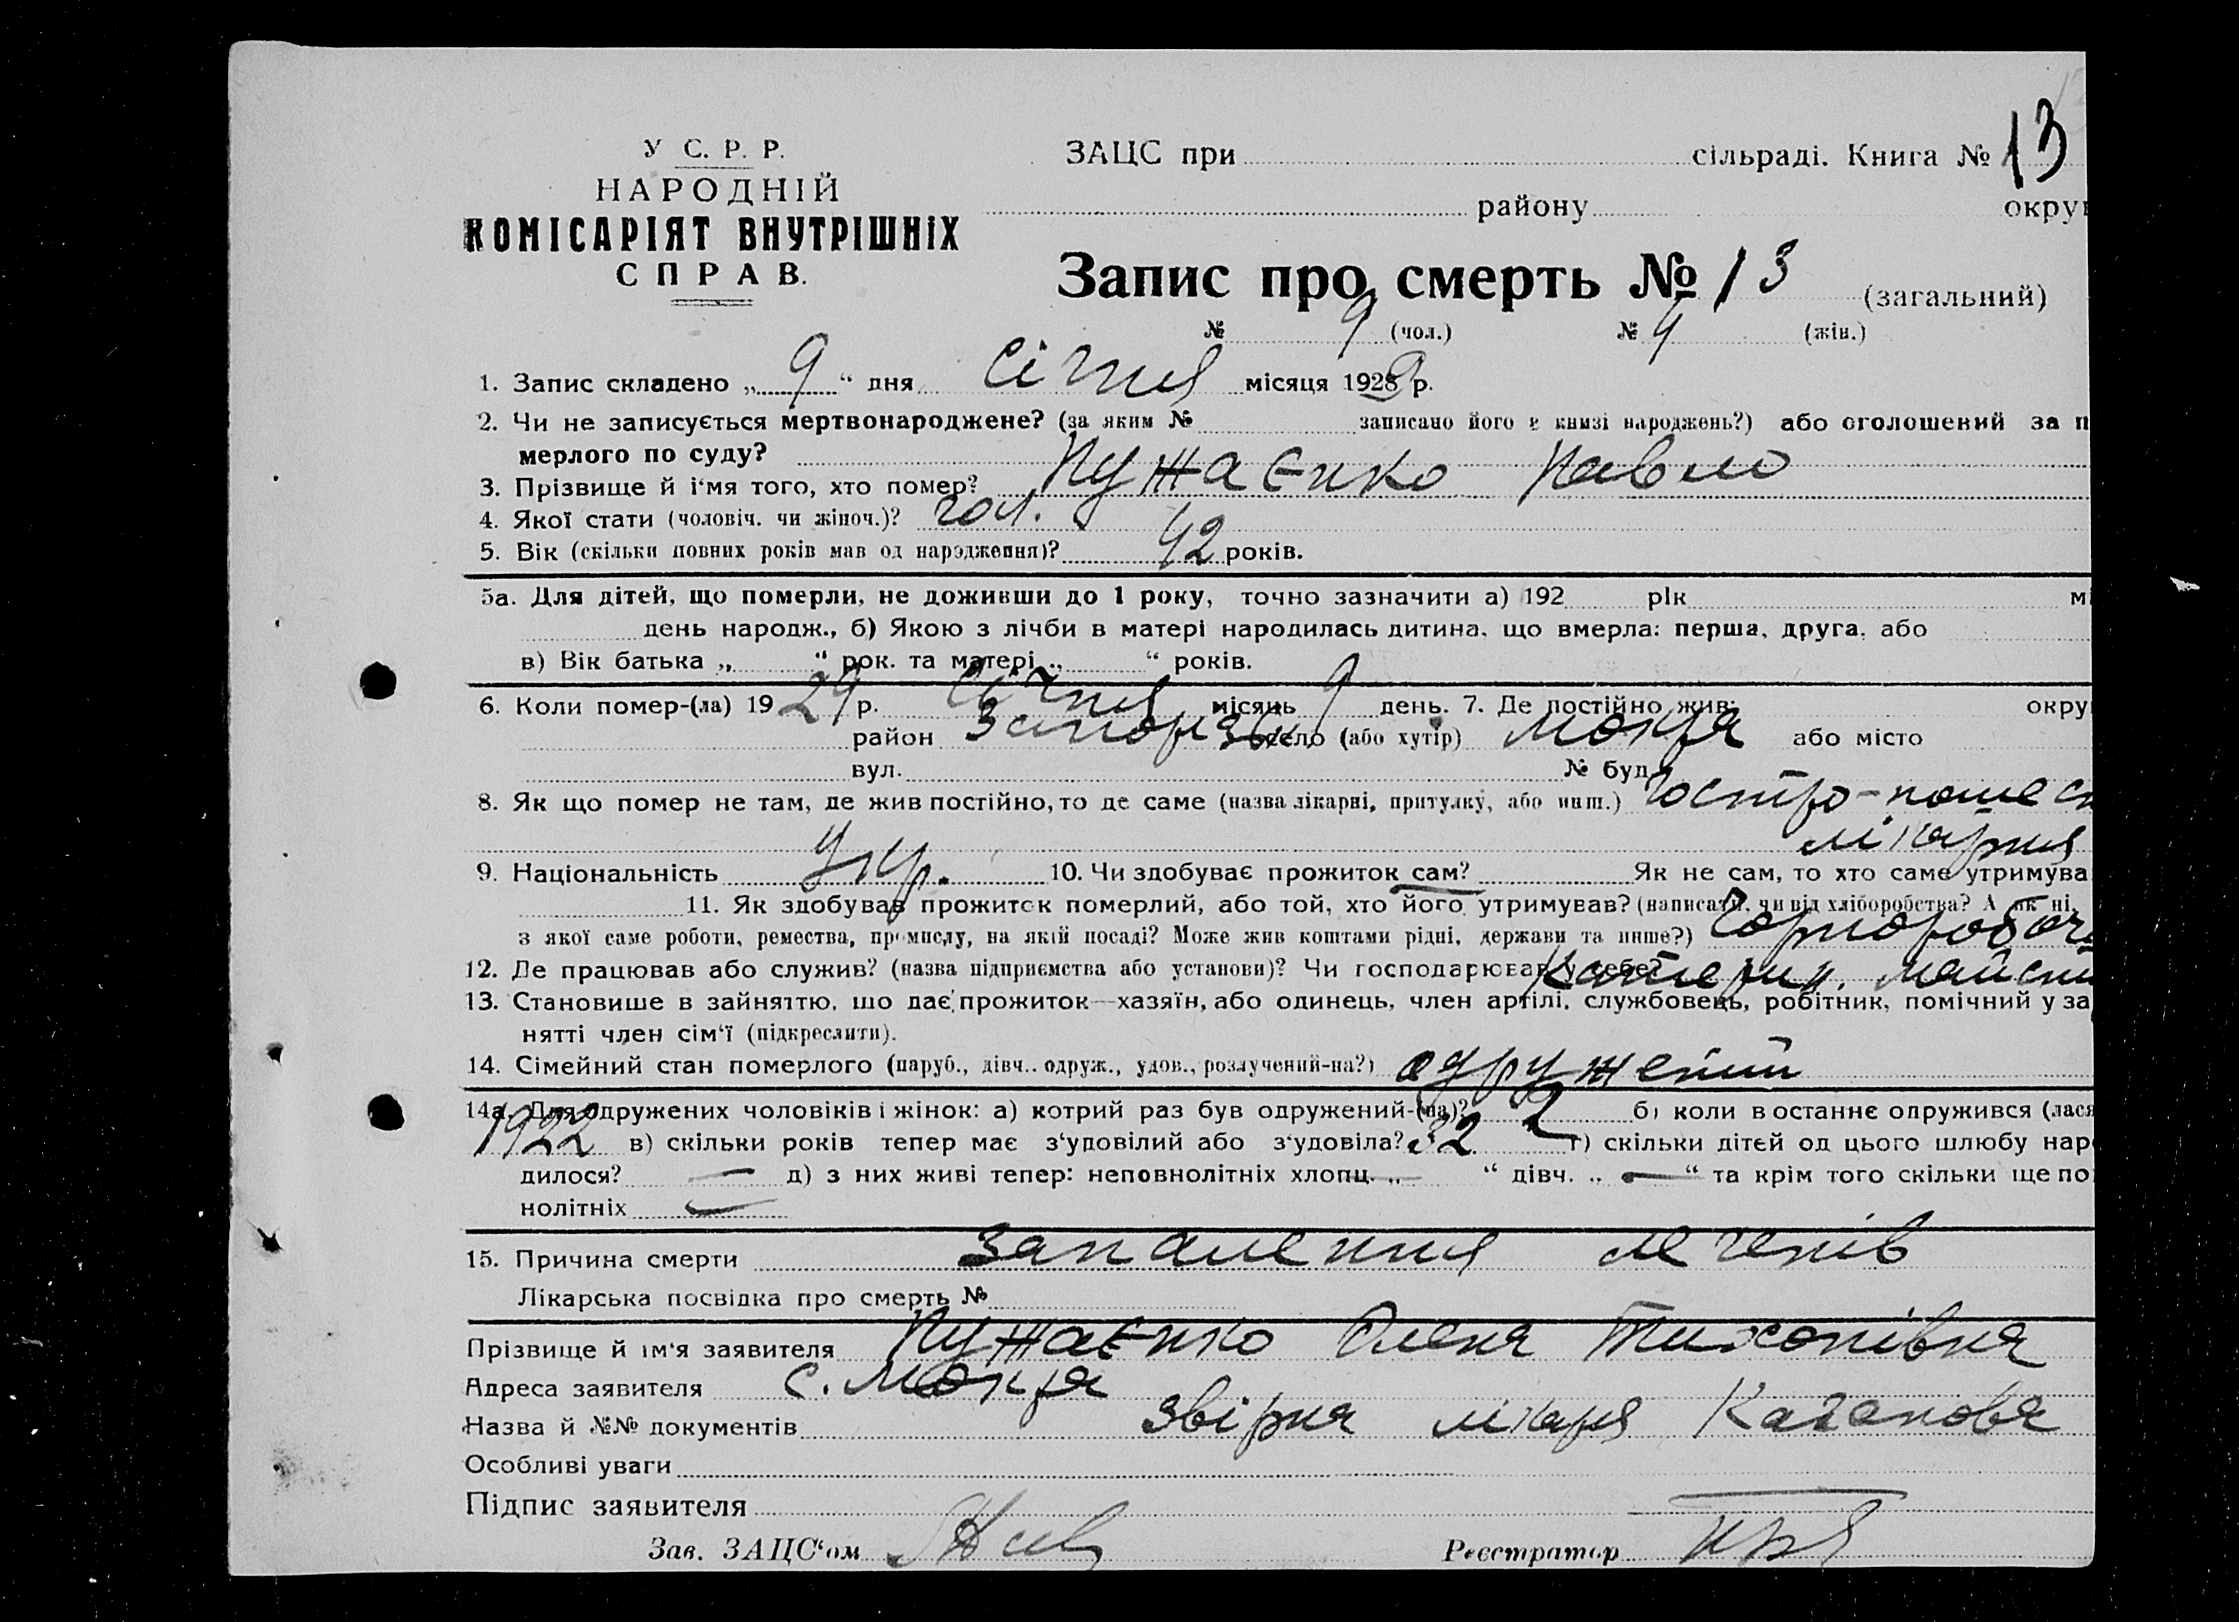 У С. Р. Р.
НАРОДНІЙ
КОМІСАРІЯТ ВНУТРІШНІХ
СПРАВ.
ЗАЦС при сільраді. Книга № 13
району окру
Запис про смерть № 13 (загальний)
№ 9 (чол.) № 4 (жін.)
1. Запис складено „ 9 “ дня Січня місяця 1929 р.
2. Чи не записується мертвонароджене? (за яким № записано його в книзі народжень?) або оголошений за п
мерлого по суду?
3. Прізвище й і‘мя того, хто помер? Пужаєнко Павло
4. Якої стати (чоловіч. чи жіноч.)? чол.
5. Вік (скільки повних років мав од народження)? 42 років.
5а. Для дітей, що померли, не доживши до 1 року, точно зазначити а) 192 рік мі
день народж., б) Якою з лічби в матері народилась дитина, що вмерла: перша, друга, або
в) Вік батька „ “ рок. та матері „ “ років.
6. Коли помер-(ла) 19 29 р. Січня місяць 9 день. 7. Де постійно жив: окру
район Запорізьк село (або хутір) Мокра або місто
вул. № буд.
8. Як що помер не там, де жив постійно, то де саме (назва лікарні, притулку, або инш.) Гостро-пошесн
лікарня
9. Національність Укр. 10. Чи здобуває прожиток сам? Як не сам, то хто саме утримува
11. Як здобував прожиток померлий, або той, хто його утримував? (написати, чи від хліборобства? А як ні,
з якої саме роботи, ремества, промислу, на якій посаді? Може жив коштами рідні, держави та инше?) Чорнороboч
12. Де працював або служив? (назва підприємства або установи)? Чи господарював у себе? Катерин. майст
13. Становище в зайняттю, що дає прожиток—хазяїн, або одинець, член артілі, службовець, робітник, помічний у за
нятті член сім‘ї (підкреслити).
14. Сімейний стан померлого (паруб., дівч., одруж., удов., розлучений-на?) одружений
14а. Для одружених чоловіків і жінок: а) котрий раз був одружений-(на)? 2 б) коли в останнє одружився (лася
1922 в) скільки років тепер має з‘удовілий або з‘удовіла? 32 г) скільки дітей од цього шлюбу наро
дилося? — д) з них живі тепер: неповнолітніх хлопц. „ — “ дівч. „ — “ та крім того скільки ще по
нолітніх —
15. Причина смерти Запалення легенів
Лікарська посвідка про смерть №
Прізвище й ім‘я заявителя Пужаєнко Олена Тихонівна
Адреса заявителя с. Мокра
Назва й №№ документів звірка лікаря Каганова
Особливі уваги
Підпис заявителя
Зав. ЗАЦС‘ом
Реєстратор